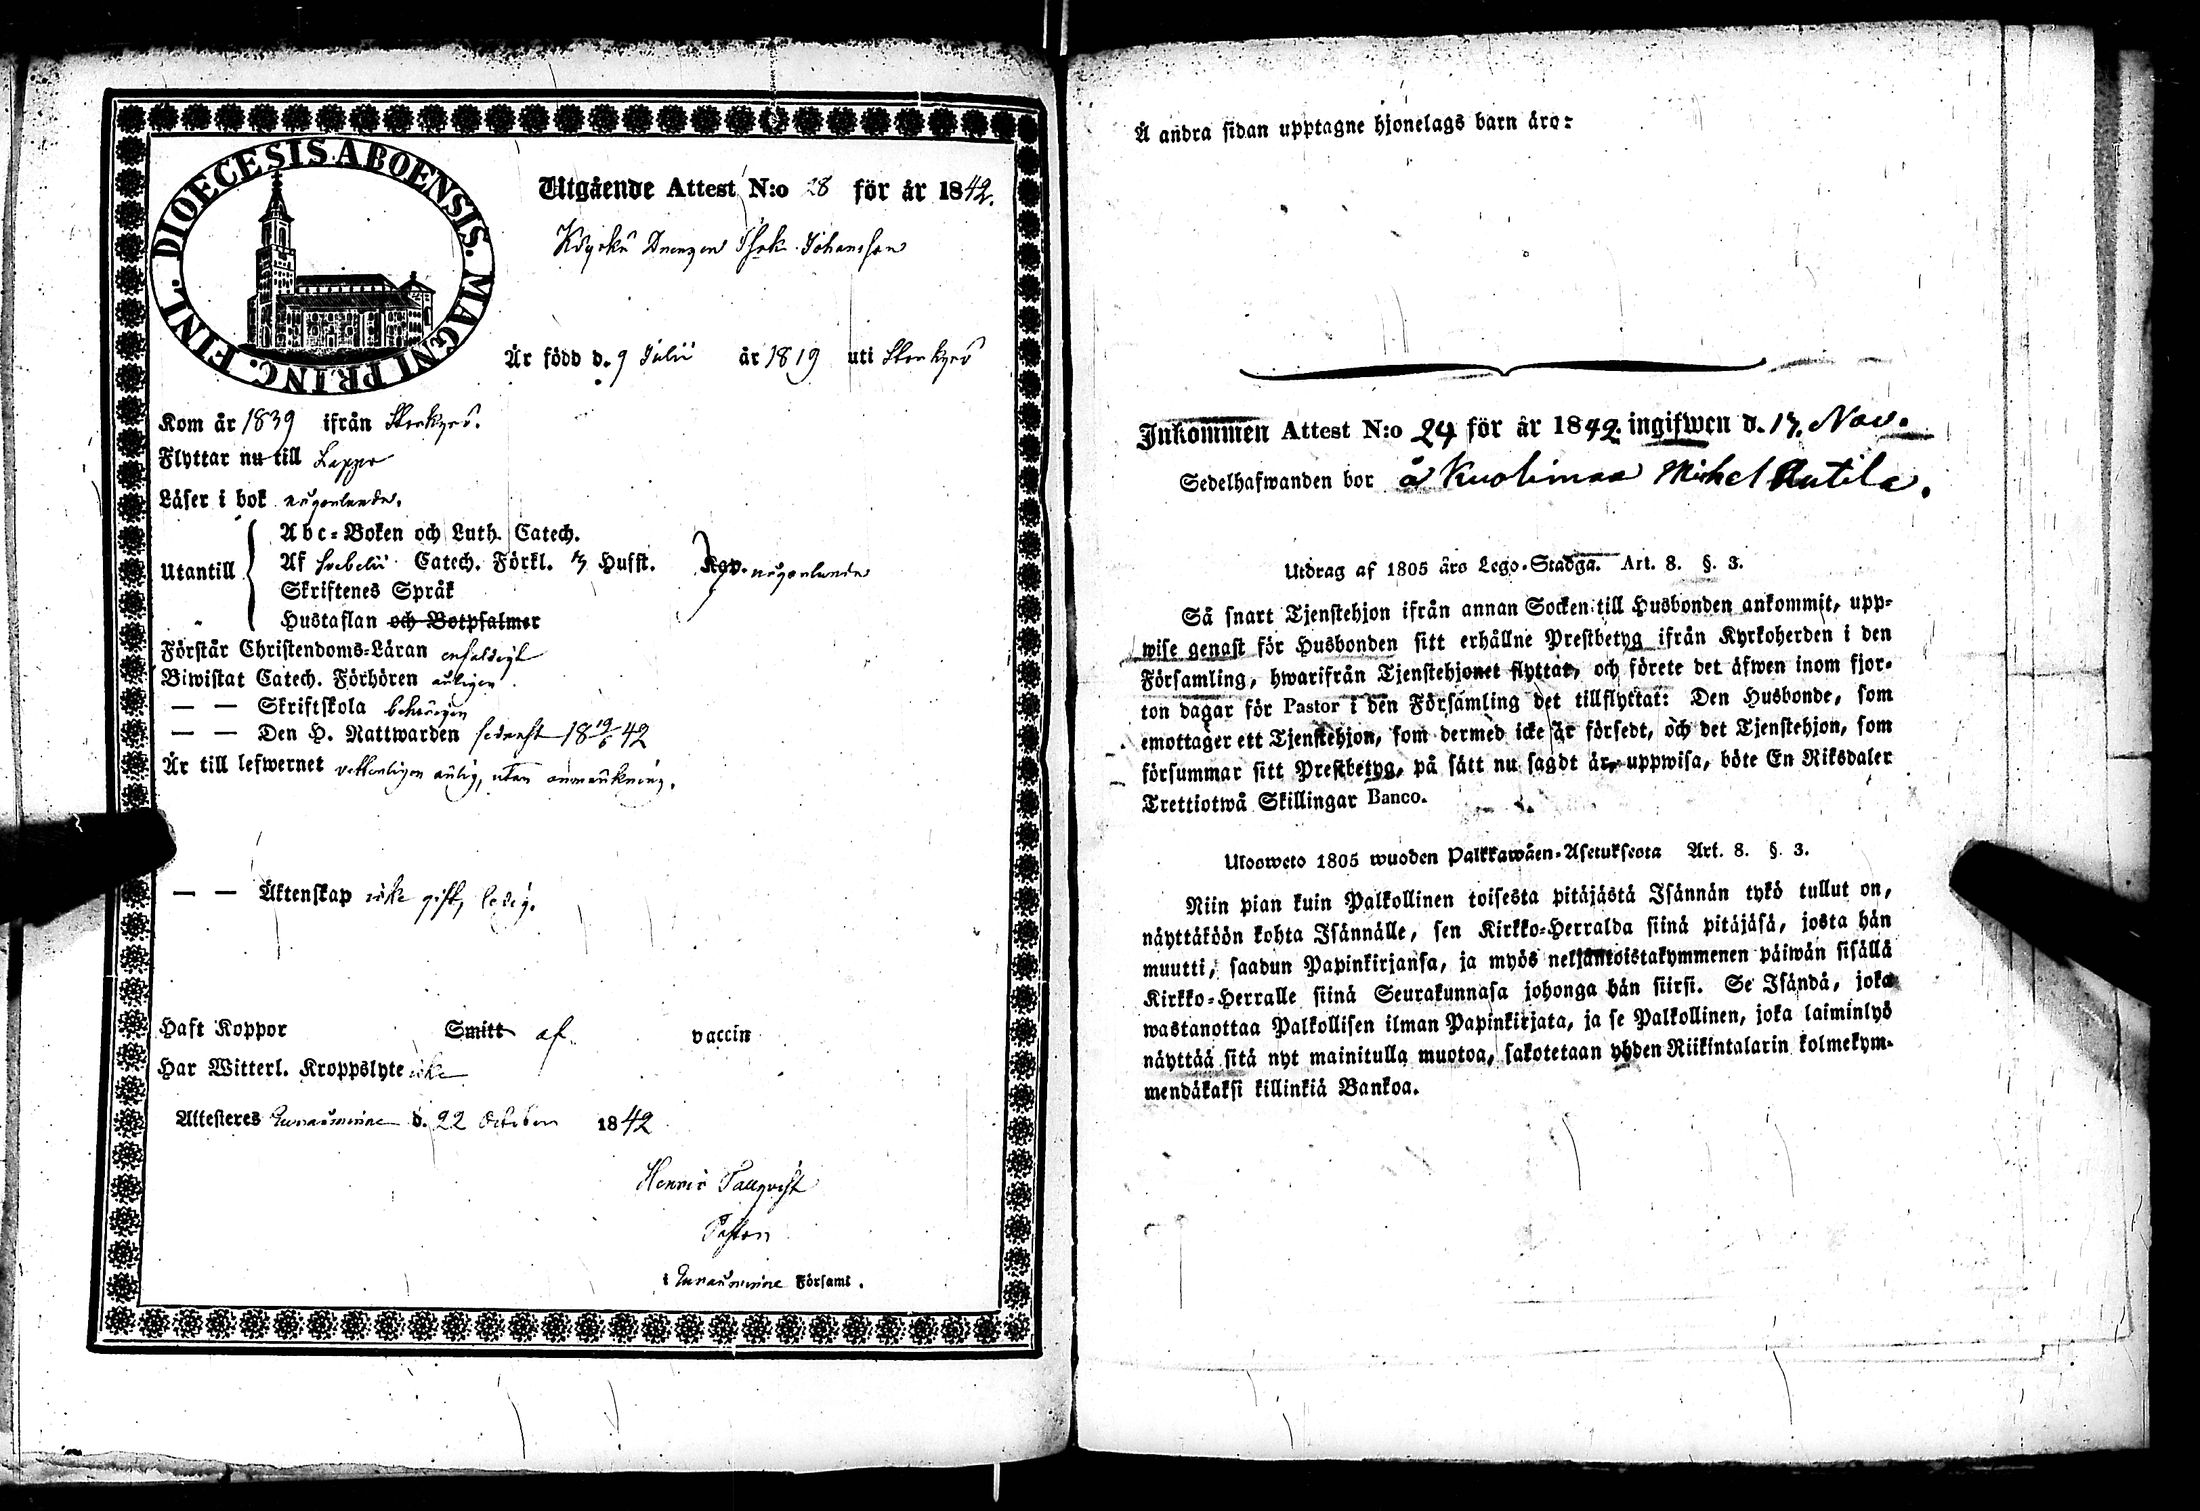 DIOECESIS ABOENSIS. MAGNI PRINC. FINL.
Utgående Attest N:o 28 för år 1842.
Drengen Isak Johansson
Är född d. 9 Julii år 1819 uti Storkyrö
Kom år 1839 ifrån Storkyrö.
Flyttar nu till Lappo
Läser i bok någorlunda.
Utantill
Abc-Boken och Luth. Catech.
Af Svebelii Catech. Förkl. Hufst.
någorlunda
Skriftenes Språk
Hustaflan och Botpsalmer
Förstår Christendoms-Läran enfaldigt
Biwistat Catech. Förhören årligen
— — Skriftskola behörigen
— — Den H. Nattwarden sednast 18 19/6 42
Är till lefwernet vetterligen ärlig, utan anmärkning.
— — Äktenskap icke gift, ledig.
Haft Koppor Smitt af vaccin
Har Witterl. Kroppslyte icke
Attesteres d. 22 October 1842
Henric Tallqvist
Pastor
i Församl.
Å andra sidan upptagne hjonelags barn äro:
Inkommen Attest N:o 24 för år 1842. ingifwen d. 17. Nov.
Sedelhafwanden bor å Kuolimaa Michel Rutila.
Utdrag af 1805 års Lego-Stadga. Art. 8. §. 3.
Så snart Tjenstehjon ifrån annan Socken till Husbonden ankommit, upp-
wise genast för Husbonden sitt erhållne Prestbetyg ifrån Kyrkoherden i den
Församling, hwarifrån Tjenstehjonet flyttat, och förete det äfwen inom fjor-
ton dagar för Pastor i den Församling det tillflyttat: Den Husbonde, som
emottager ett Tjenstehjon, som dermed icke är försedt, och det Tjenstehjon, som
försummar sitt Prestbetyg, på sätt nu sagdt är, uppwisa, böte En Riksdaler
Trettiotwå Skillingar Banco.
Ulosweto 1805 wuoden Palkkawäen-Asetuksesta Art. 8. §. 3.
Niin pian kuin Palkollinen toisesta pitäjästä Isännän tykö tullut on,
näyttäköön kohta Isännälle, sen Kirkko-Herralda siinä pitäjäsä, josta hän
muutti, saadun Papinkirjansa, ja myös neljäntoistakymmenen päiwän sisällä
Kirkko-Herralle siinä Seurakunnasa johonga hän siirsi. Se Isändä, joka
wastanottaa Palkollisen ilman Papinkirjata, ja se Palkollinen, joka laiminlyö
näyttää sitä nyt mainitulla muotoa, sakotetaan yhden Riikintalarin kolmekym-
mendäkaksi killinkiä Bankoa.